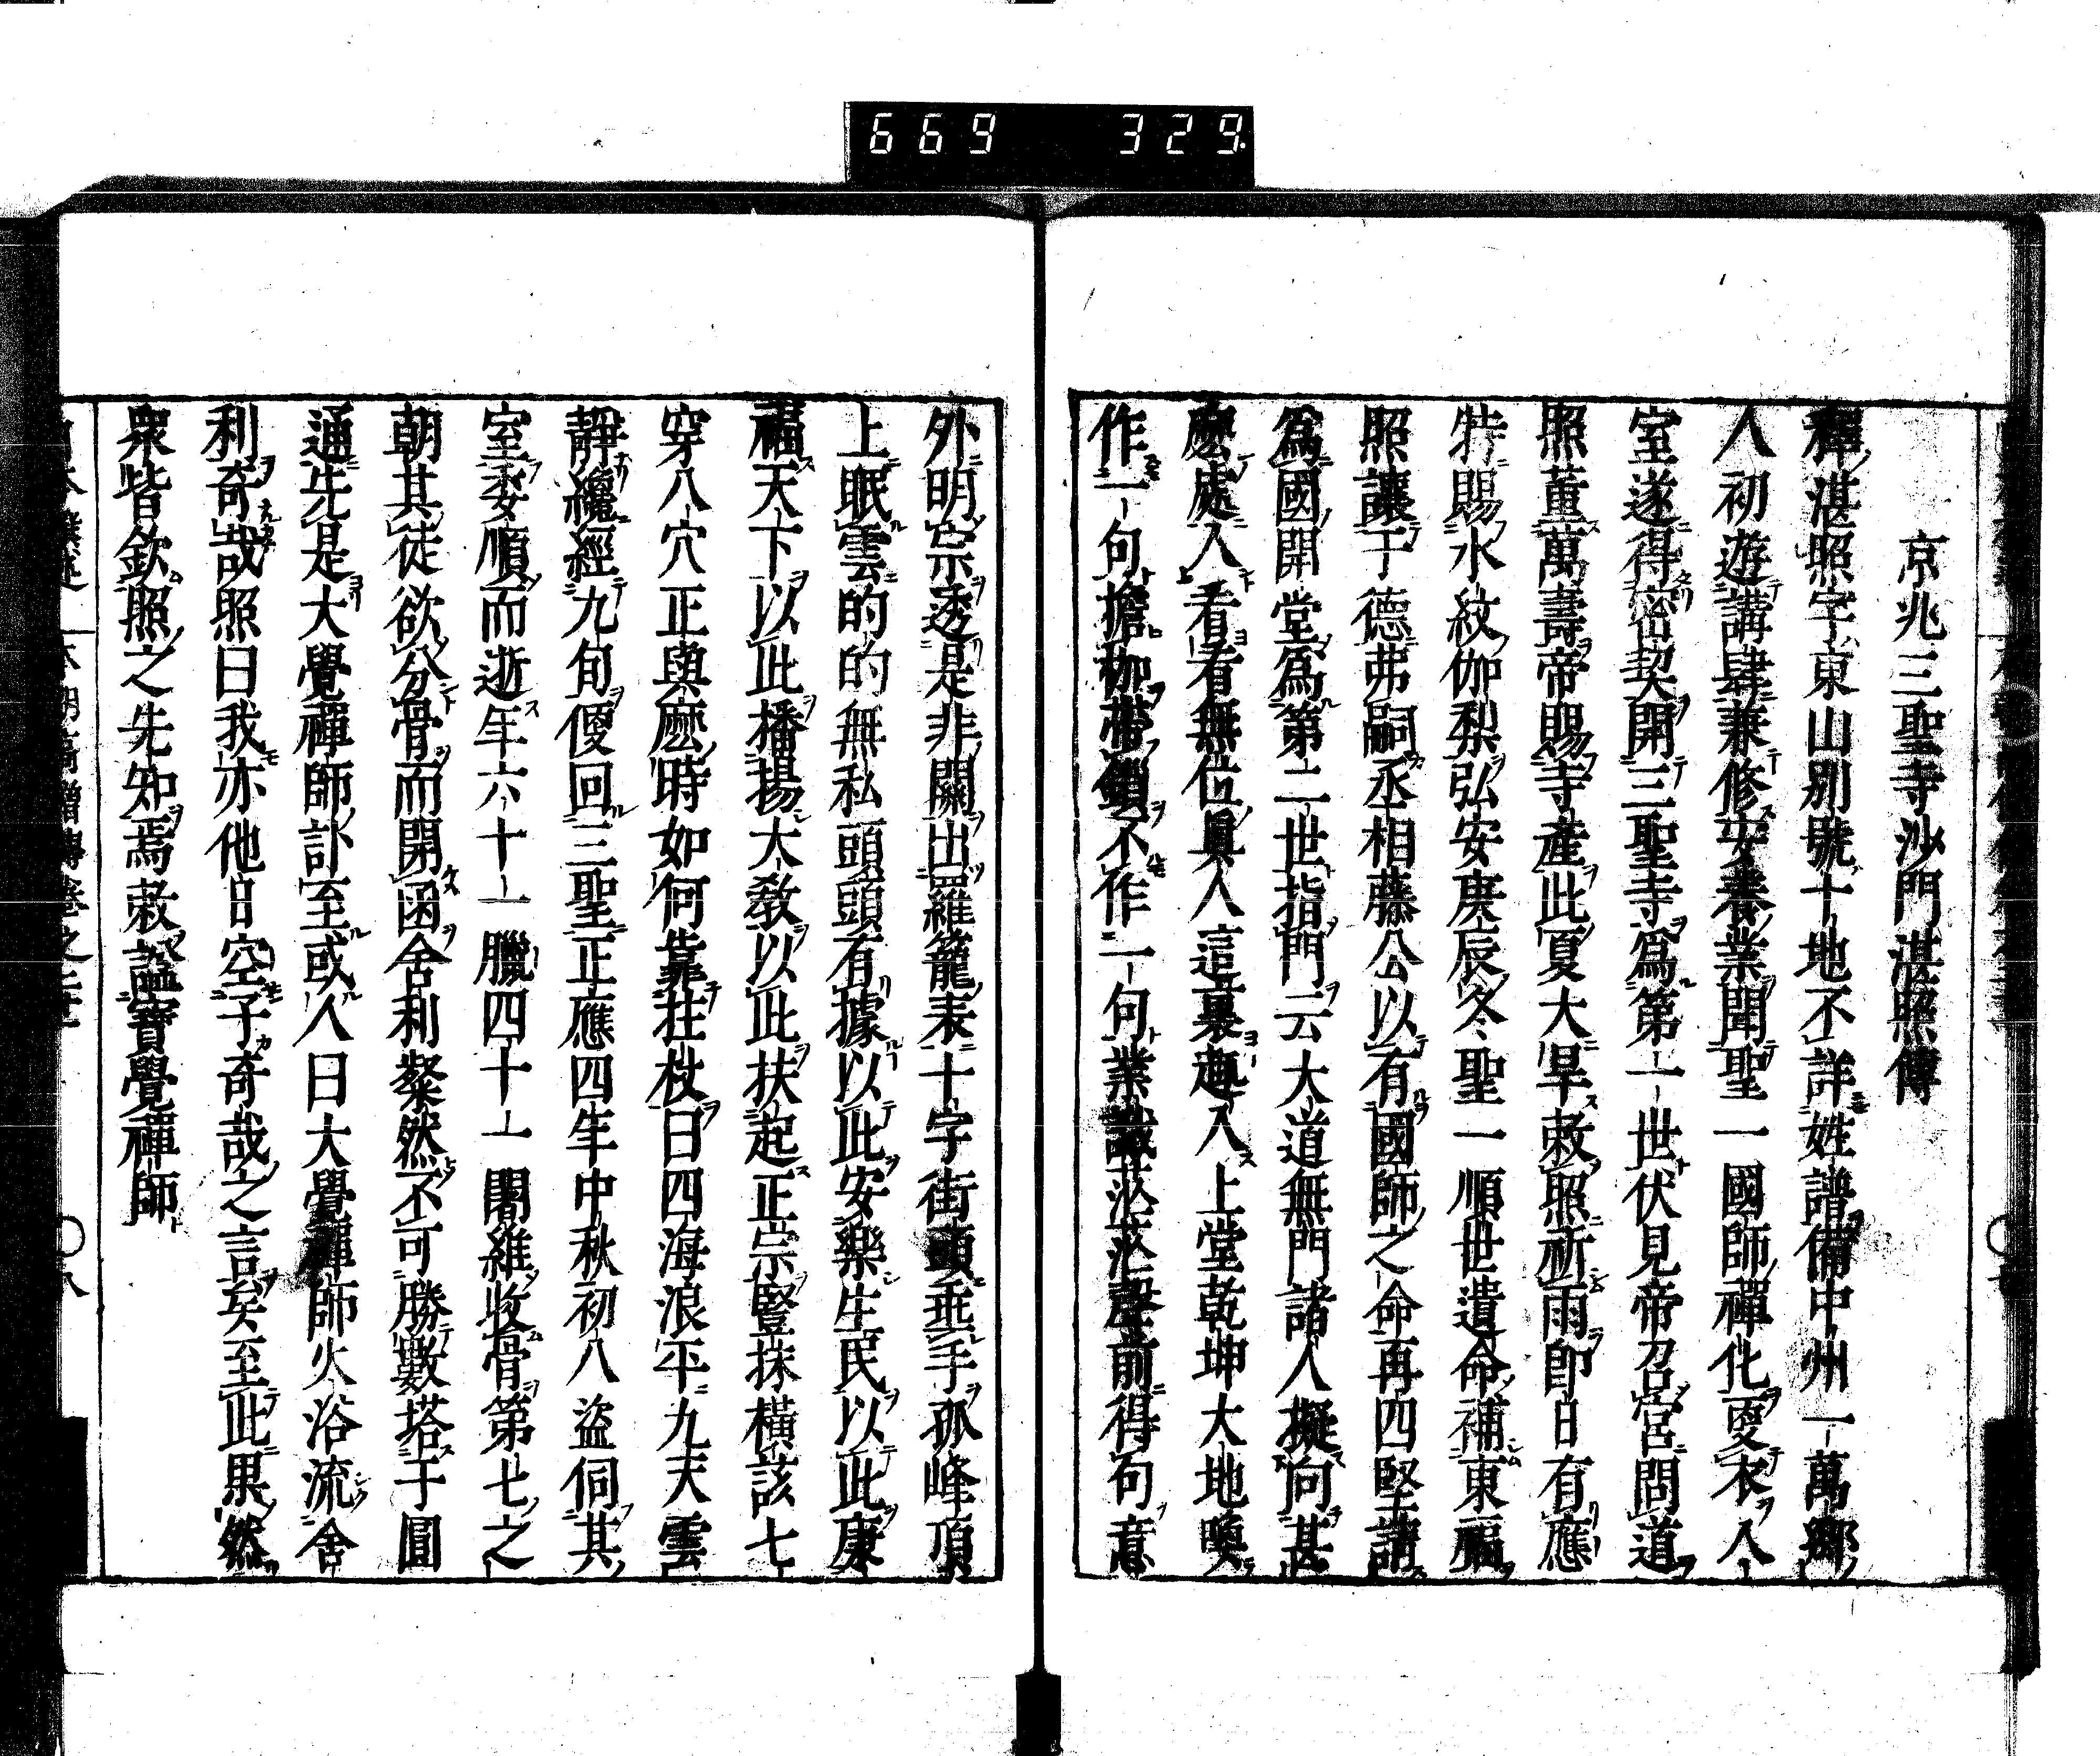 669 329
京兆三聖寺沙門湛照傳
釋湛照字東山別號十地不詳姓譜備中州一萬鄉
人初遊講肆兼修安養業聞聖一國師禪化更衣入
室遂得密契開三聖寺爲第一世伏見帝召宮問道
照董萬壽帝賜寺產此夏大旱敕照祈雨卽日有應
特賜水紋伽梨弘安庚辰冬聖一順世遺命補東福
照讓于德弗嗣丞相藤公以有國師之命再四堅請
爲國開堂爲第二世指門云大道無門諸人擬向甚
麼處入看看無位眞人這裏趣入上堂乾坤大地喚
作一句擔枷帶鎖不作一句業識茫茫聲前得句意
外明宗透是非關出羅籠表十字街頭垂手孤峰頂
上眠雲的的無私頭頭有據以此安樂生民以此康
福天下以此播揚大教以此扶起正宗豎抹橫該七
穿八穴正與麼時如何靠拄杖曰四海浪平九天雲
靜纔經九旬便回三聖正應四年中秋初八盜伺其
室委順而逝年六十一臘四十一闍維收骨第七之
朝其徒欲分骨而開函舍利粲然不可勝數塔于圓
通先是大覺禪師訃至或人曰大覺禪師火浴流舍
利奇哉照曰我亦他日空子奇哉之言矣至此果然
衆皆欽照之先知焉敕諡寶覺禪師